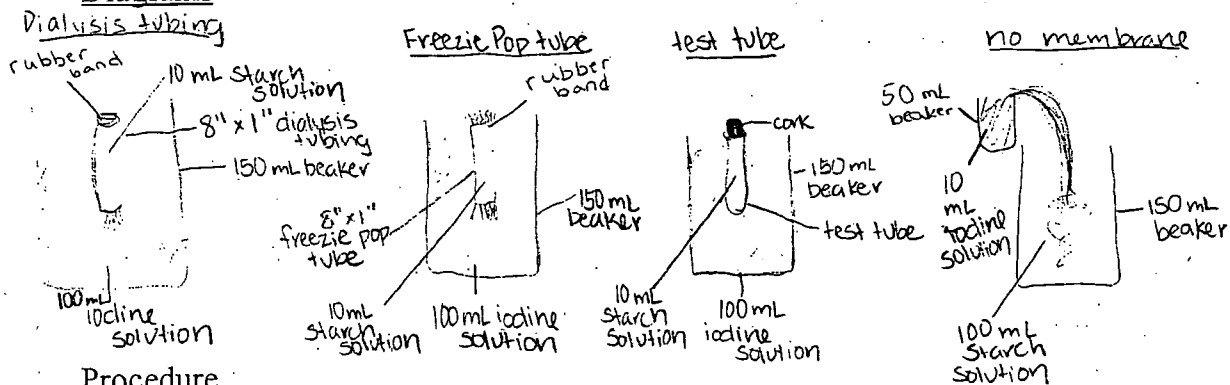 Dialysis tubing
rubber
band
10 mL starch
solution
8" x 1" dialysis
tubing
150 mL beaker
100 mL
iodine
solution
Freezie Pop tube
rubber
band
8" x 1"
freezie pop
tube
150 mL
beaker
10 mL
starch
solution
100 mL iodine
solution
test tube
cork
150 mL
beaker
test tube
10 mL
starch
solution
100 mL
iodine
solution
no membrane
50 mL
beaker
10
mL
iodine
solution
150 mL
beaker
100 mL
starch
solution
Procedure